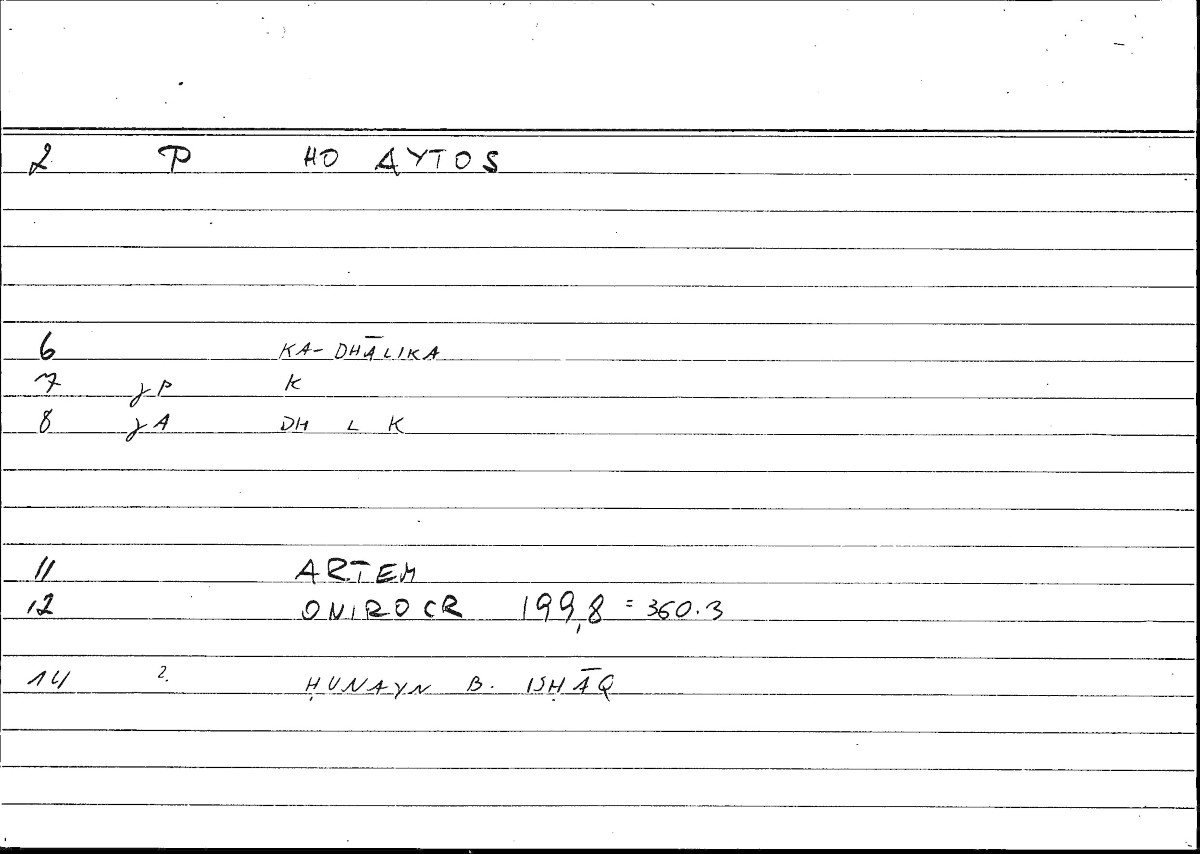 2 P HO AYTOS
6 KA-DHĀLIKA
7 jP K
8 jA DH L K
11 ARTEM
12 ONIROCR 199,8 = 360.3
14 2. ḤUNAYN B. ISḤĀQ